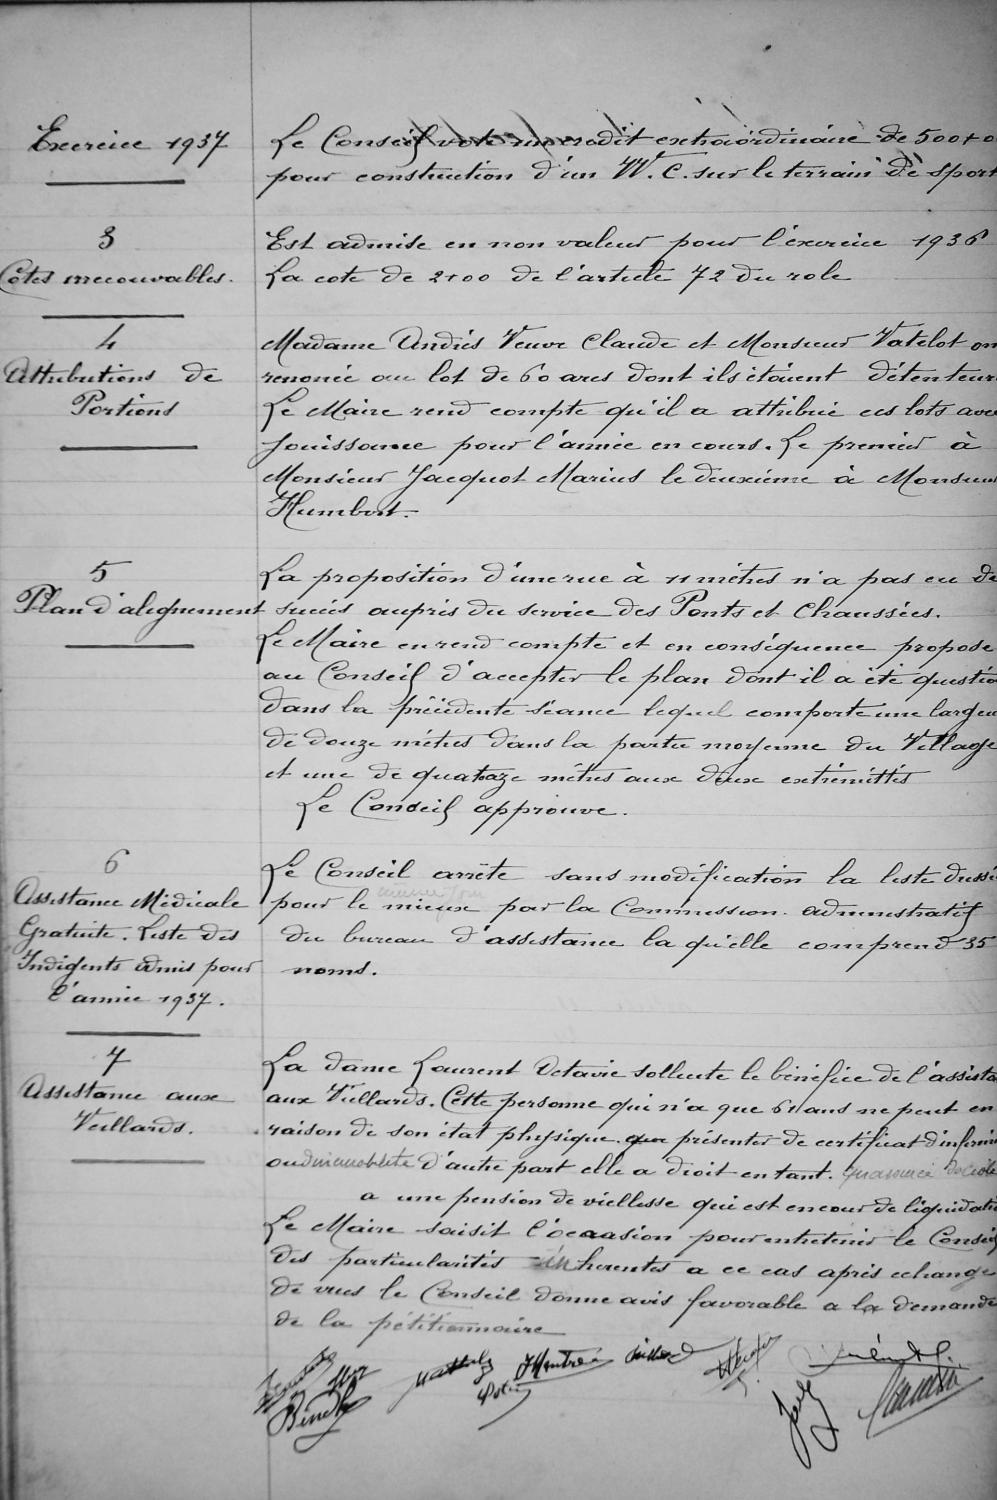 Exercice 1937
Le Conseil vote un credit extraordinaire de 500+0
pour constuction d'un W.C. sur le terrain de sport
3
Côtes irrecouvables.
Est admise en non valeur pour l'éxercice 1936
La cote de 2+00 de l'article 72 du role
4
Attributions de
Portions
Madame Andrés Veuve Claude et Monsieur Vatelot on
renoncé au lot de 60 ares dont ils étaient détenteur
Le Maire rend compte qu'il a attribué ces lots avec
jouissance pour l'année en cours. Le premier à
Monsieur Jacquot Marius le deuxième à Monsieur
Humbert.
5
Plan d'alignement
La proposition d'une rue à 11 mètres n'a pas eu de
succés auprès du service des Ponts et Chaussées.
Le Maire en rend compte et en conséquence propose
au Conseil d'accepter le plan dont il a été questio
dans la précédente séance lequel comporte une largeu
de douze mètres dans la partie moyenne du Village
et une de quatorze mètres aux deux extrémittés
Le Conseil approuve.
6
Assistance Médicale
Gratuite. Liste des
Indigents admis pour
l'année 1937.
Le Conseil arrête sans modification la liste dressé
pour le mieux par la Commission administratif
du bureau d'assistance la qu'elle comprend 35
noms.
7
Assistance aux
Veillards.
La dame Laurent Octavie sollicite le bénéfice de l'assista
aux Vieillards. Cette personne qui n'a que 61 ans ne peut en
raison de son état physique que présenter de certificat d'infirmi
ou d'autre part elle a droit en tant.
a une pension de viellesse qui est en cour de liquidati
Le Maire saisit l'ocaasion pour entretenir le Conseil
des particularités inherentes a ce cas après echange
de vues le Conseil donne avis favorable a la demande
de la pétitionnaire